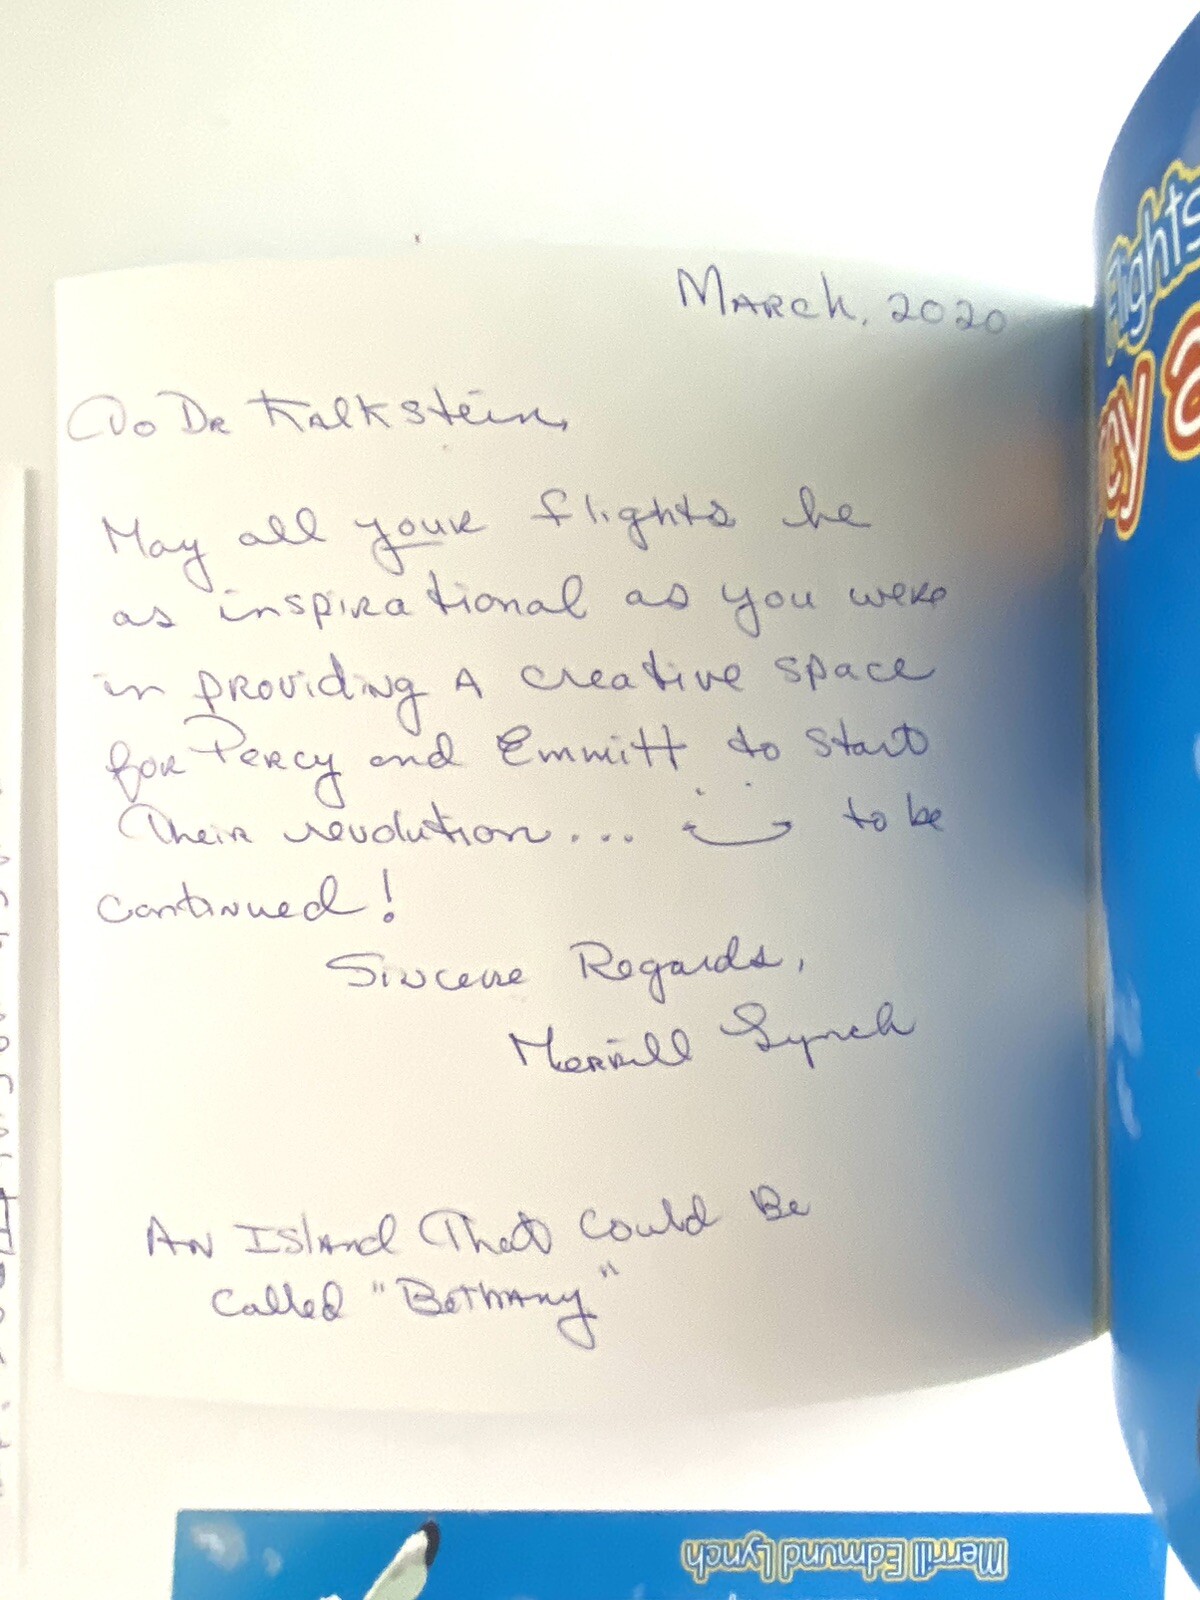 March, 2020
To Dr Kalkstein,
May all your flights be
as inspirational as you were
in providing A creative space
for Percy and Emmitt to start
Their revolution... to be
continued!
Sincere Regards,
Merrill Lynch
An Island That Could Be
called "Bethany"
Flights
cy a
Merrill Edmund Lynch